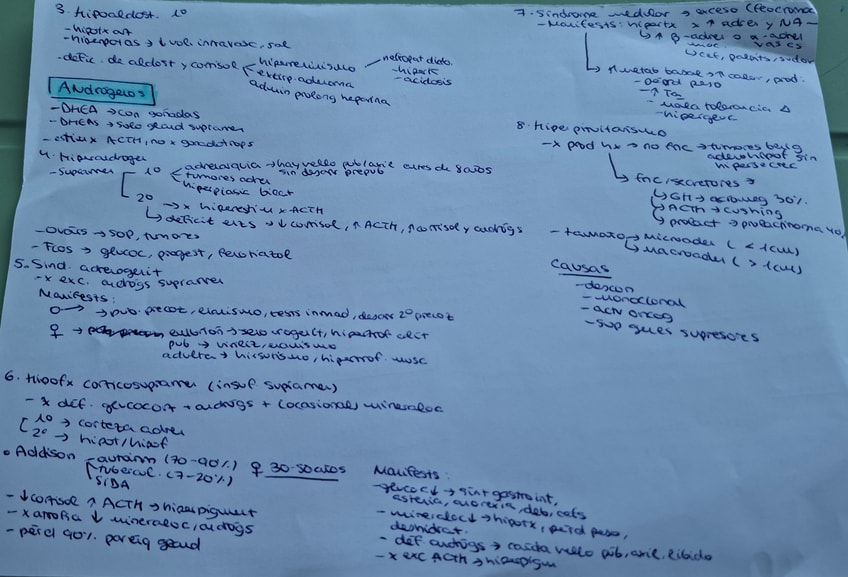 3. Hipoaldost. 10
- hipotx art
- hiperpotas → ↓ vol. intravasc, sal
- defic. de aldost y cortisol
hiporreninismo
extirp. adenoma
admin prolong heparina
nefropat diab.
- hiperk
- acidosis
ANDRÓGENOS
- DHEA → con gónadas
- DHEAS → solo gland suprarren
- estim x ACTH, no x gonadotrops
4. Hiperandrogen
- Suprarren
10
adrenarquia → hay vello pub/axil antes de 8 años
sin desarr prepub
tumores adren
hiperplasia bilat
20 → x hiperestim x ACTH
↳ déficit enzs → ↓ cortisol, ↑ ACTH, ↑ cortisol y andrógs
- Ovários → SOP, tumores
- Fcos → glucoc, progest, fenotiazol
5. Sind. adrenogenit
- x exc. andrógs suprarren
Manifests:
♂ → pub. precoz, enanismo, testis inmad, desarr 2º precoz
♀ → embrión → seno urogenit, hipertrof clit
pub → viriliz, enanismo
adulta → hirsutismo, hipertrof. musc
6. Hipofx corticosuprarren (insuf suprarren)
- x déf. glucocort + andrógs + (ocasional) mineraloc
10 → corteza adren
20 → hipot/hipof
• Addison
- autoinm (70-90%)
tubercul. (7-20%)
SIDA
♀ 30-50 años
- ↓ cortisol ↑ ACTH → hiperpigment
- x atrofia ↓ mineraloc, andrógs
- pérd 90% parénq gland
Manifests:
- glucoc ↓ → sint gastroint,
astenia, anorexia, deb, cefs
- mineraloc ↓ → hipotx, pérd peso,
deshidrat.
- déf. andrógs → caída vello púb, axil, líbido
- x exc ACTH → hiperpigm
7. Síndrome medular → exceso (feocromoc
- Manifests: hipertx x ↑ adren y NA -
↳ ↑ β-adren o α-adren
↳ cef, palpits, sudor
↳ ↑ metab basal → ↑ calor, prod.
- pérd peso
- ↑ Ta
- mala tolerancia Δ
- hipergluc
8. Hiperpituitarismo
- x prod hx → no fnc → tumores benig
adenohipof sin
hipersecrec
↳ fnc/secretores →
↳ GH → acromeg 30%
↳ ACTH → cushing
↳ prolact → prolactinoma 40%
- tamaño → microaden (< 1cm)
↳ macroaden (> 1cm)
CAUSAS
- descon
- monoclonal
- activ oncog
- sup genes supresores